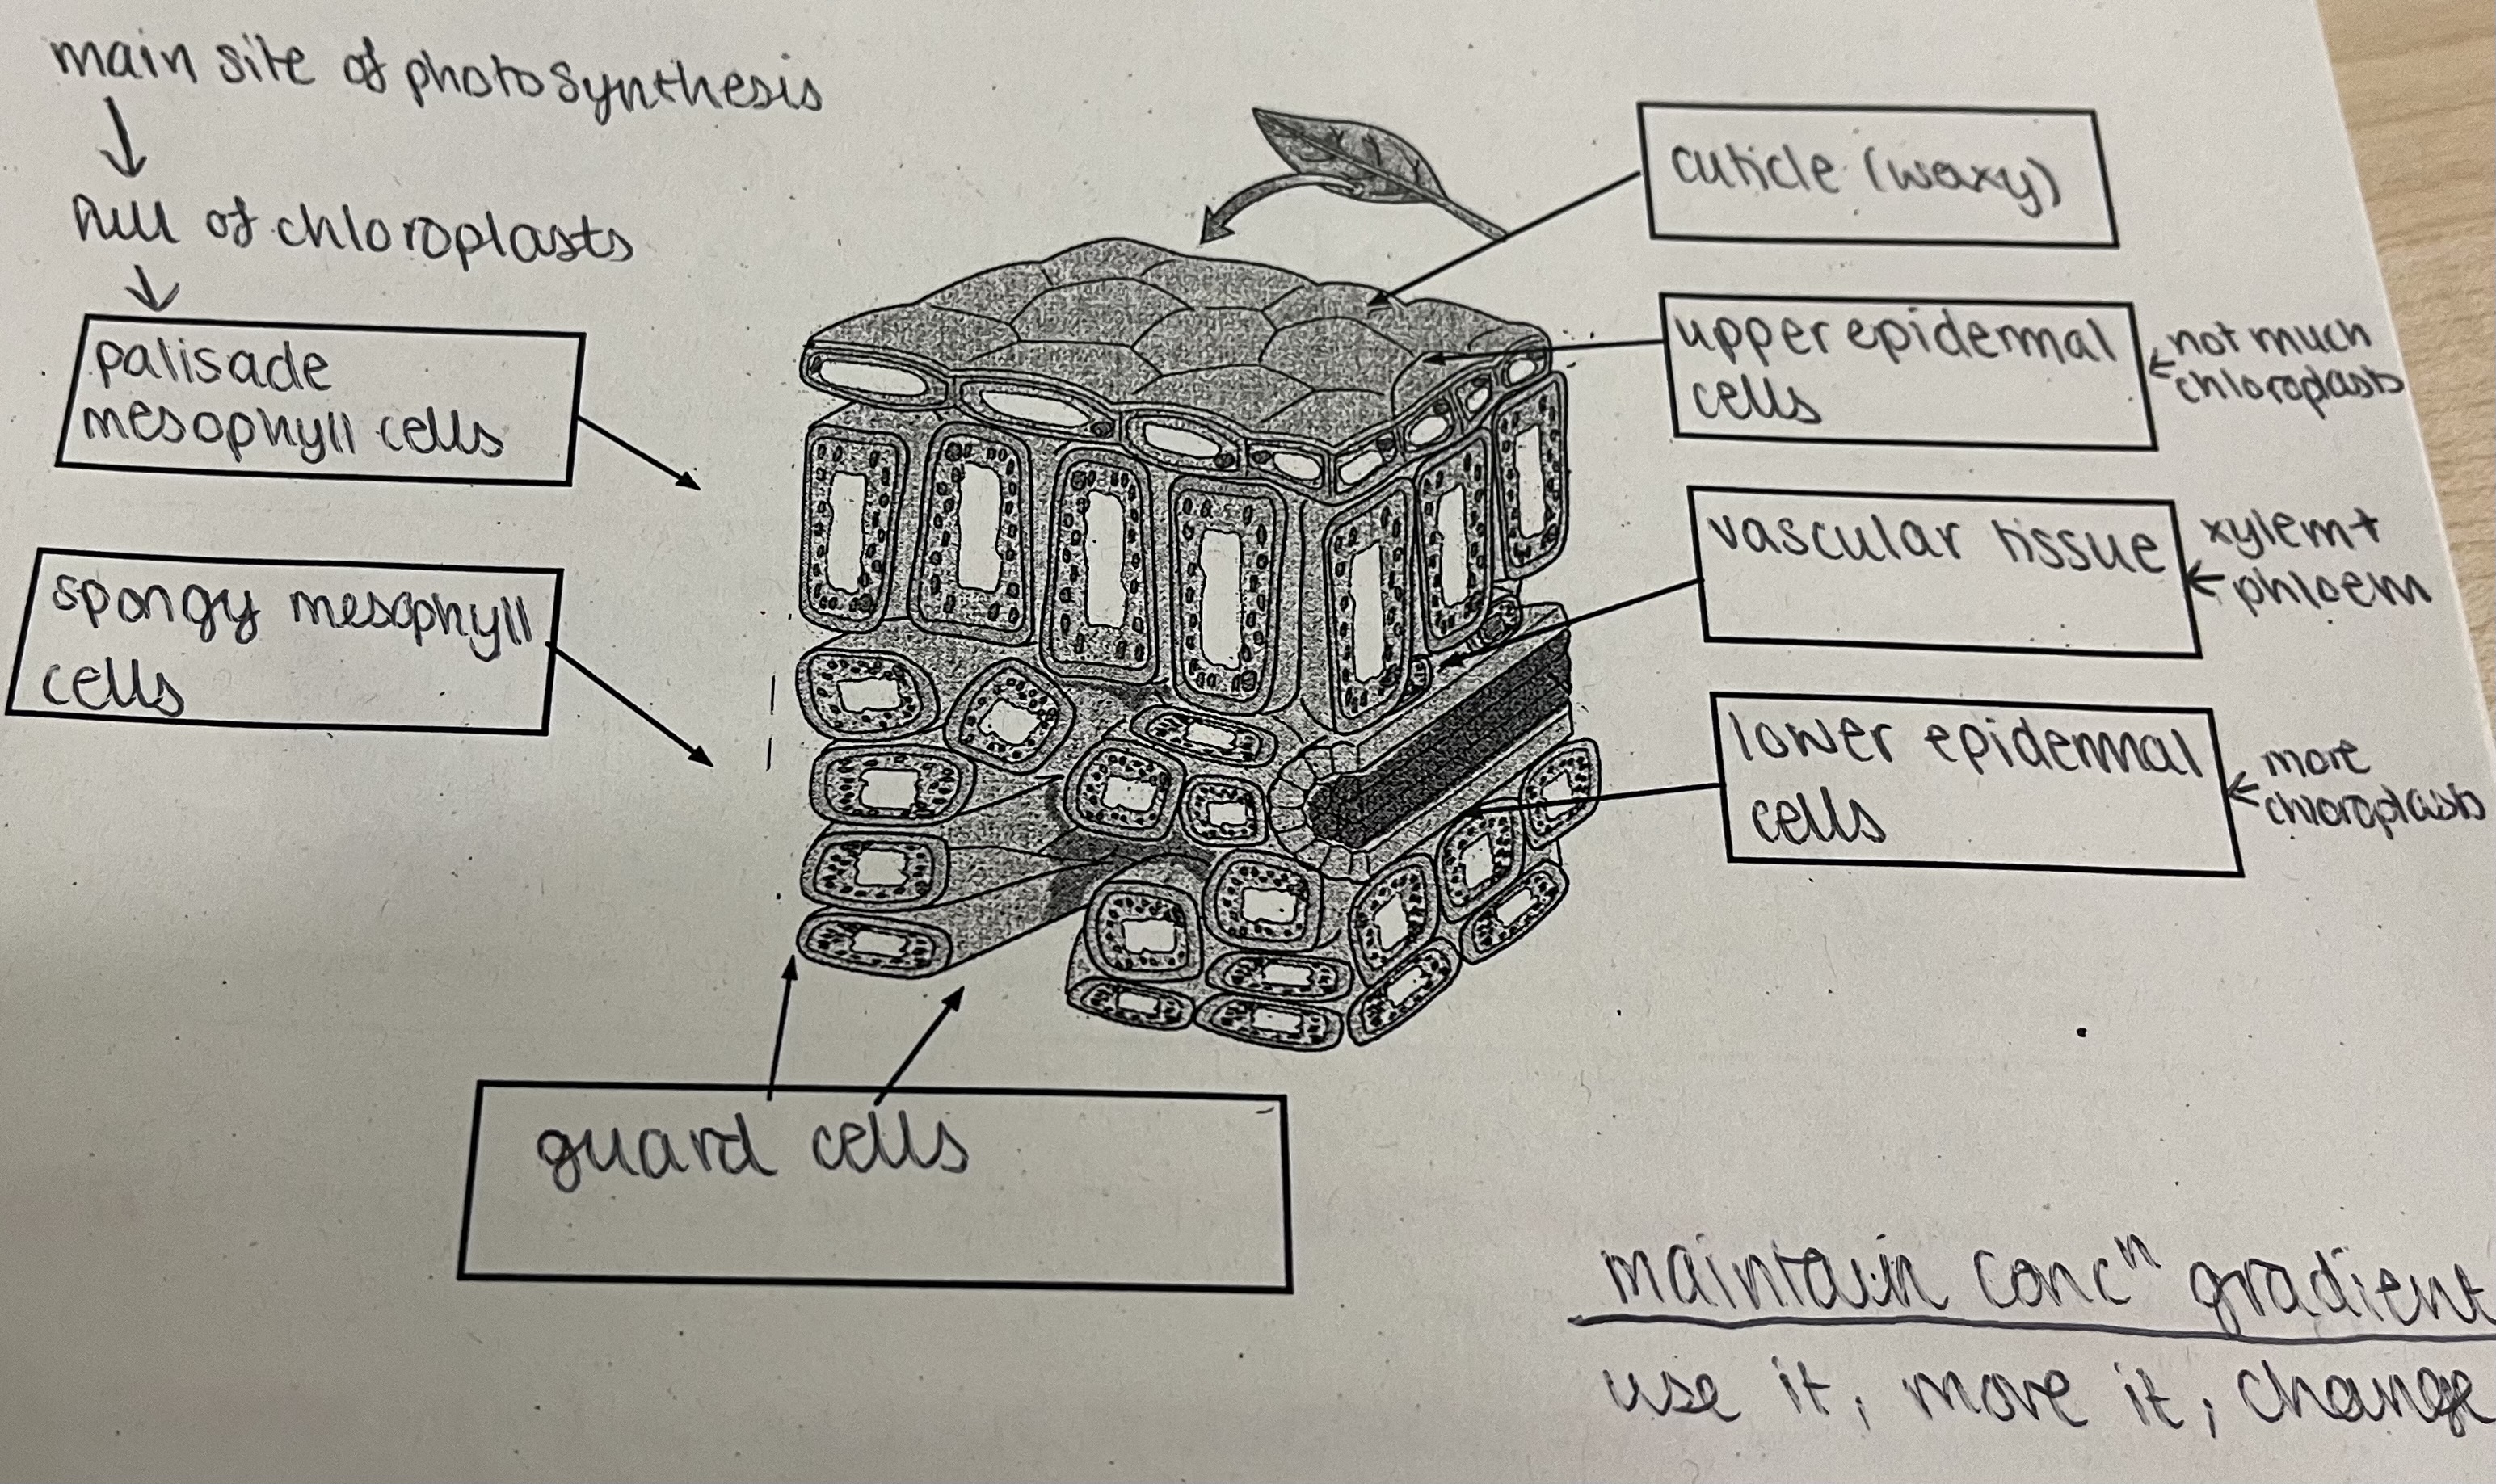 main site of photosynthesis
↓
full of chloroplasts
↓
palisade
mesophyll cells
spongy mesophyll
cells
guard cells
cuticle (waxy)
upper epidermal
cells
← not much
chloroplasts
vascular tissue
xylem +
← phloem
lower epidermal
cells
← more
chloroplasts
maintain concⁿ gradient
use it, move it, change